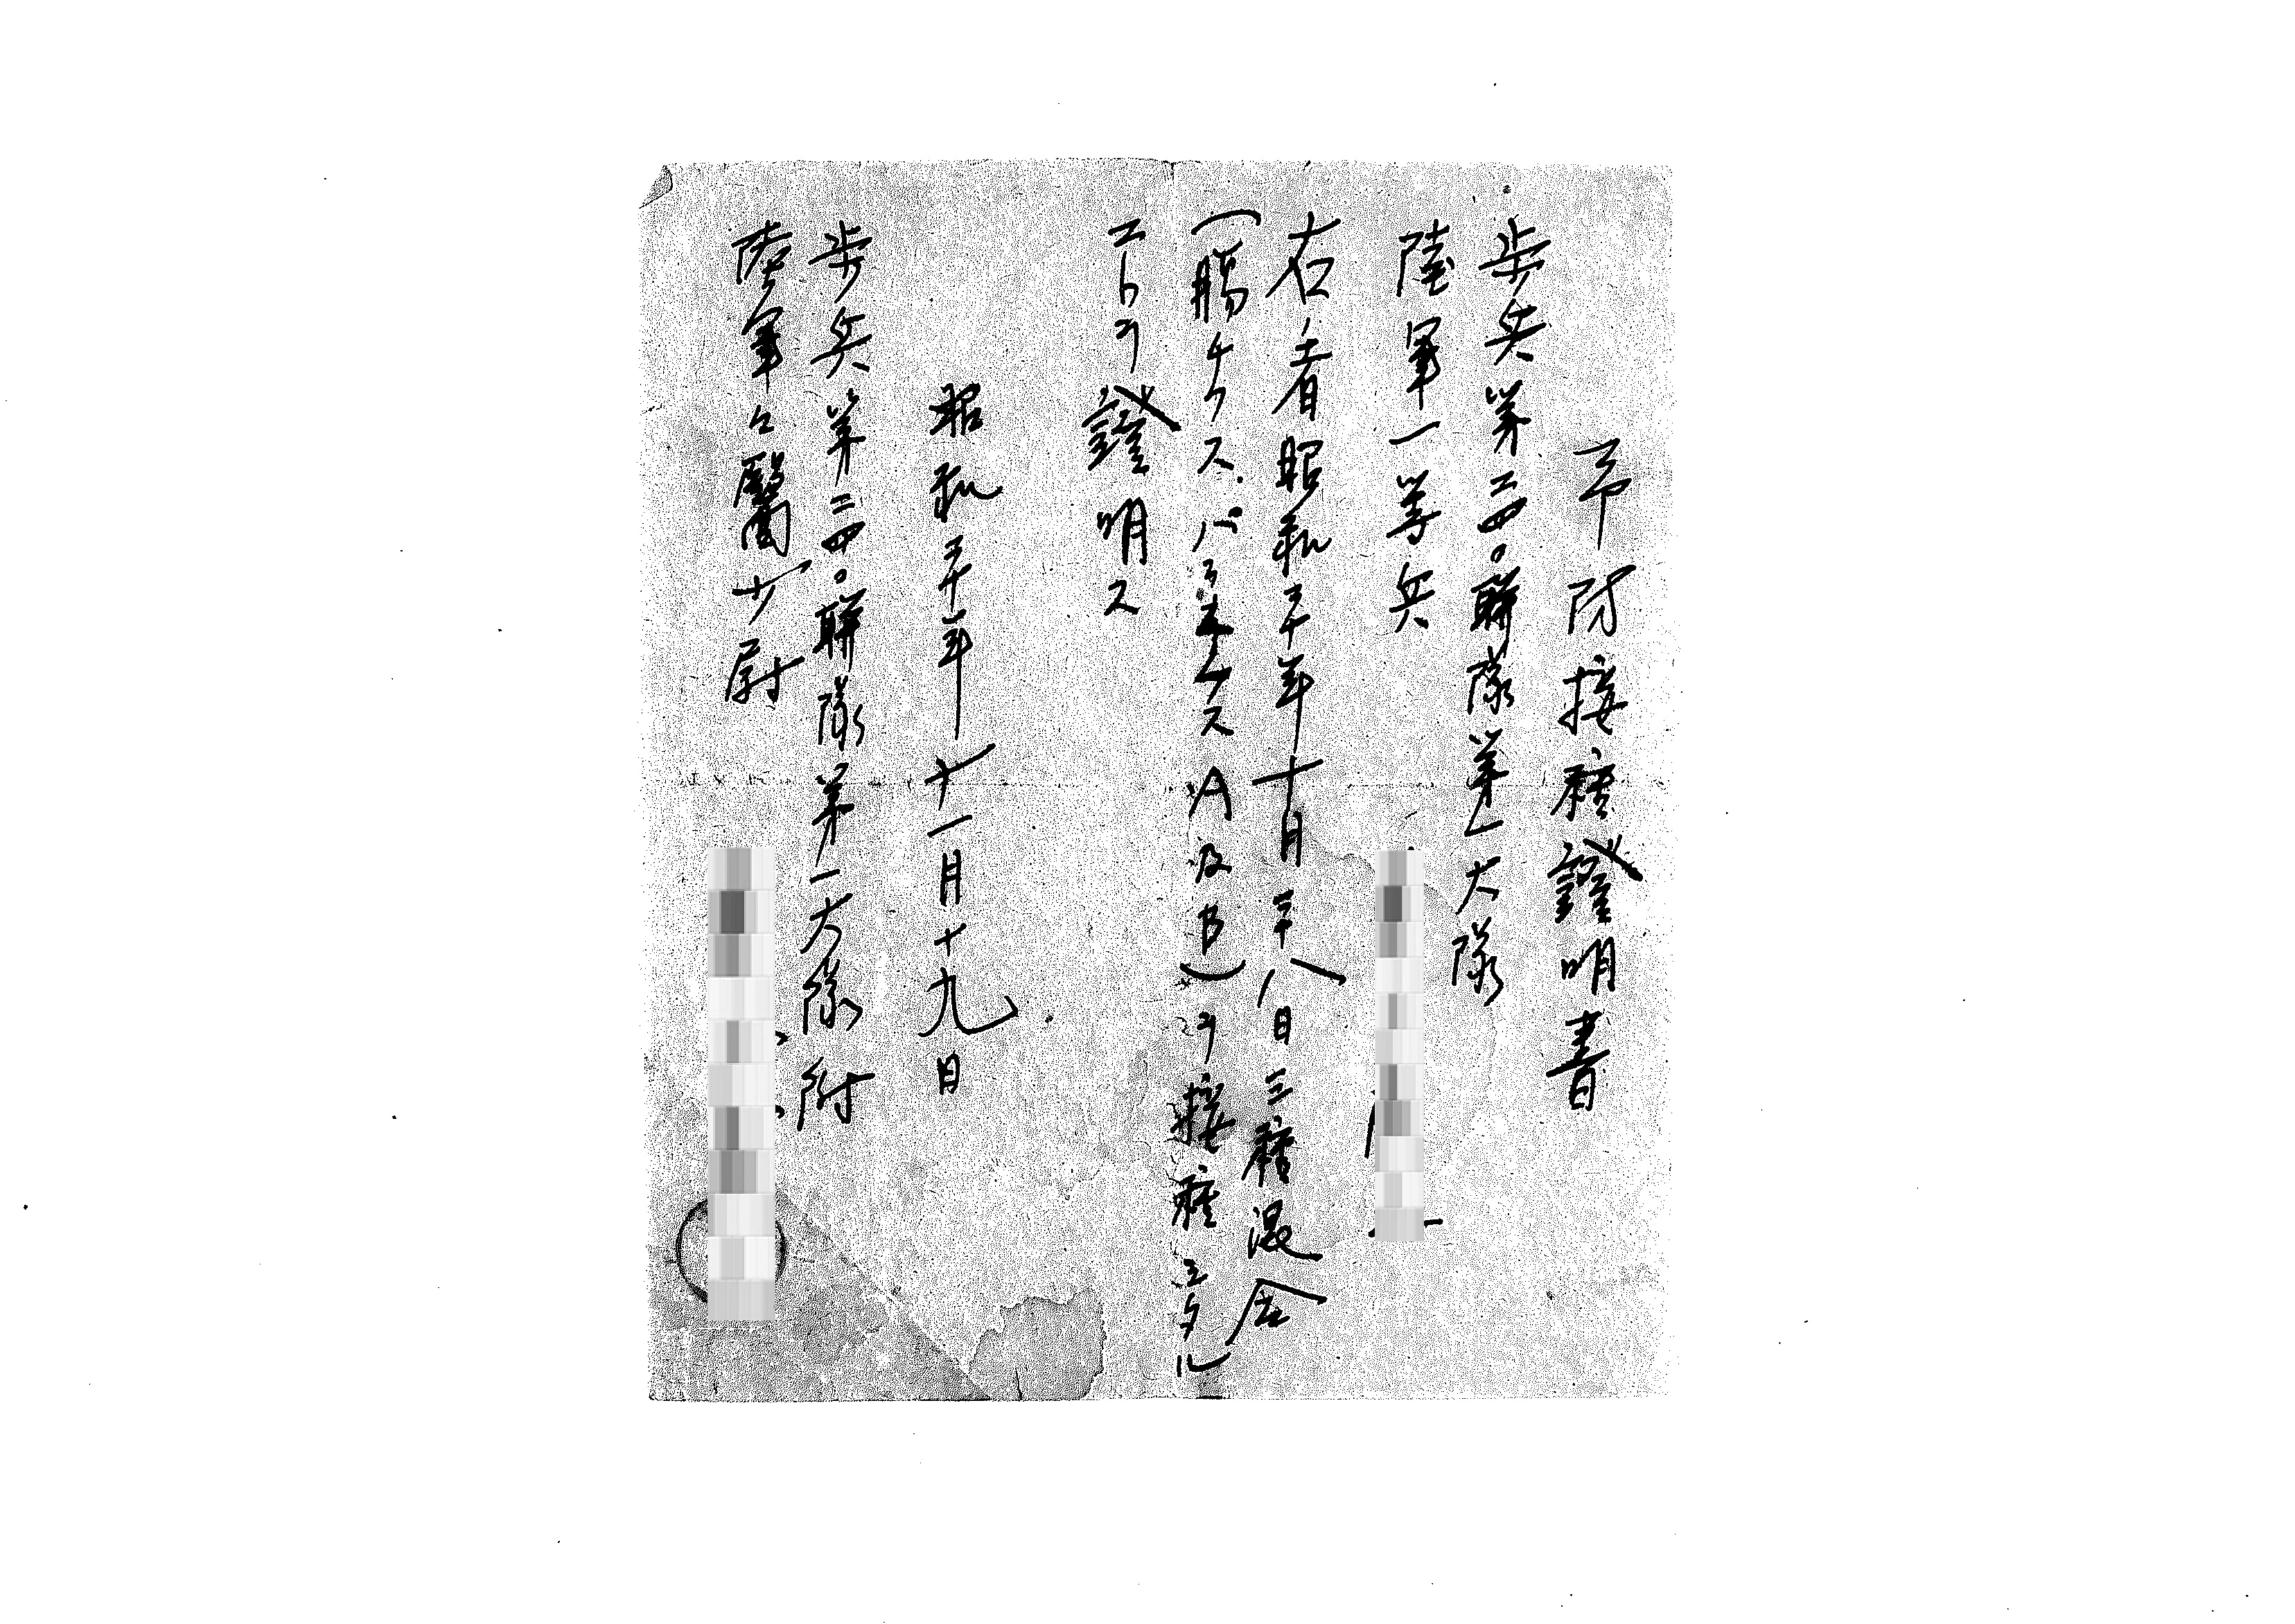 予防接種證明書
歩兵第二四〇聯隊第一大隊
陸軍一等兵
右者昭和二十年十月二十八日三種混合
(膓チフス.パラチフスA及B)ヲ接種シタル
コトヲ證明ス
昭和二十年十一月十九日
歩兵第二四〇聯隊第一大隊附
陸軍々醫少尉